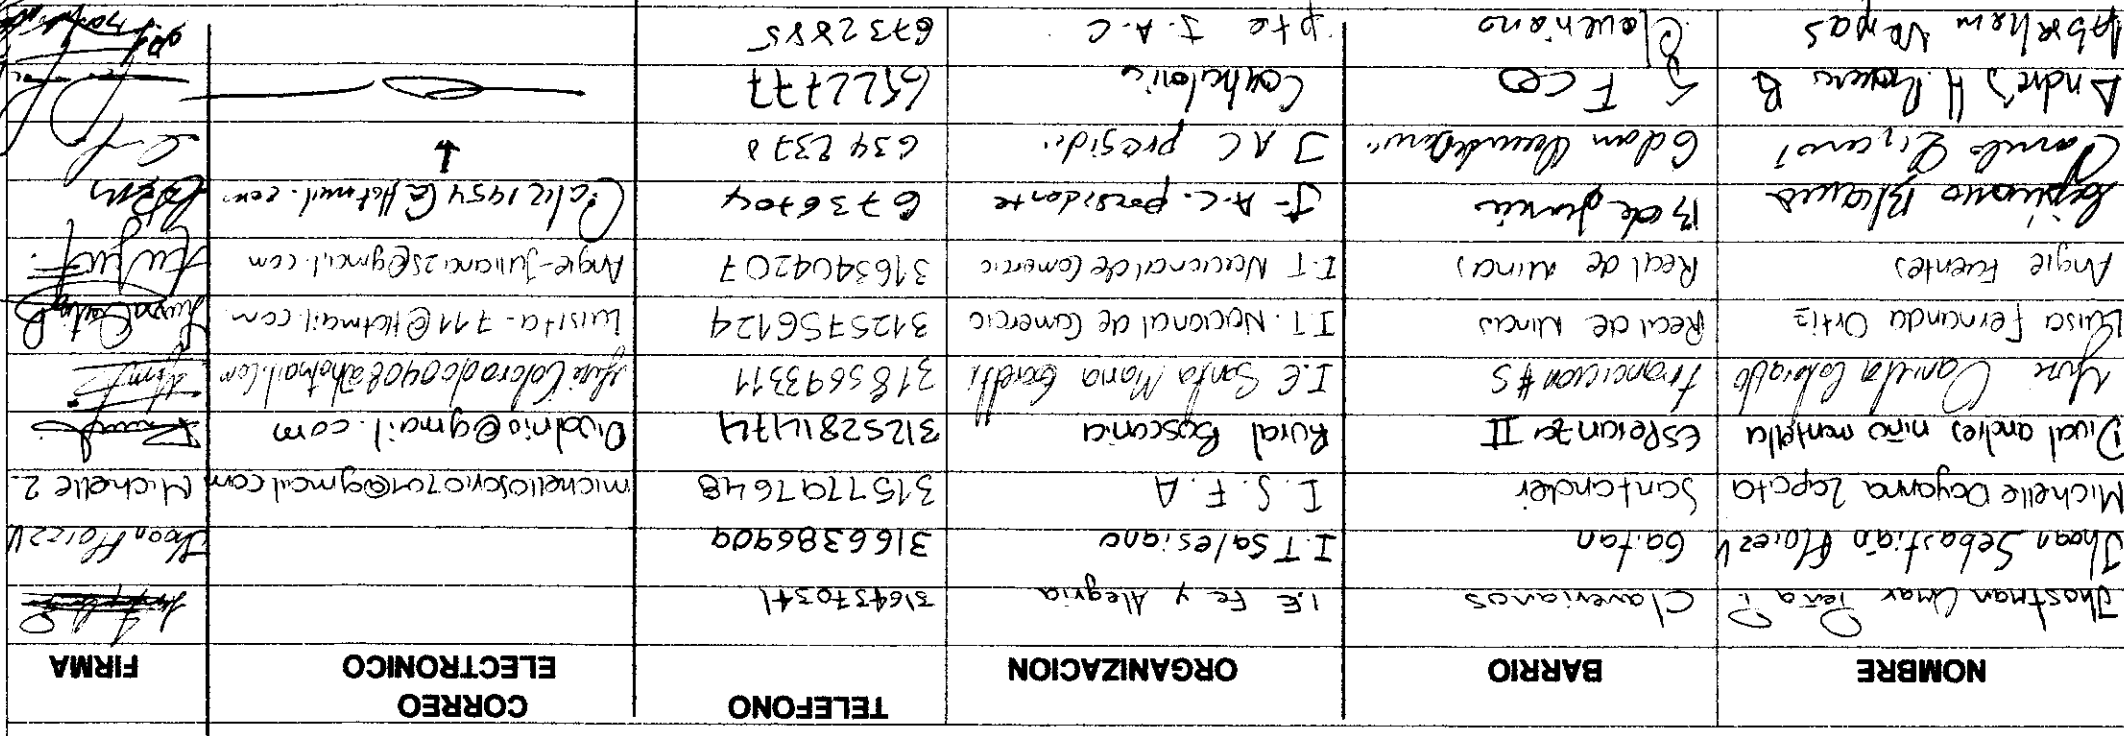 NOMBRE BARRIO ORGANIZACION TELEFONO CORREO ELECTRONICO FIRMA
Jhostman Omar Peña P. Claverianos I.E Fe y Alegria 3164370371
Jhoan Sebastian Florez V Gaitan I.T Salesiano 3166386909 Jhoan Florez V
Michelle Dayanna Zapata Santander I.S.F.A 3157797648 michelloscrio0701@gmail.com Michelle Z.
Dival andres niño mantilla Esperanza II Rural Bosconia 3125281474 Divalnio@gmail.com
Yuri Camila Colorado Francisca #5 I.E Santa Maria Goretti 3185693311 YuriColorado0408@hotmail.com
Luisa Fernanda Ortiz Real de Minas I.T. Nacional de Comercio 3125756124 Luisita-711@Hotmail.com
Angie Fuentes Real de Minas I.T Nacional de Comercio 3163404207 Angie-Juliana25@gmail.com
Blanco J.A.C. presidente 6736704 Celiz1954@Hotmail.com
J A C preside. 6342378
Andrés H. B S FCO 6522777
Abraham Vargas Claveriano pte J.A.C 6732885